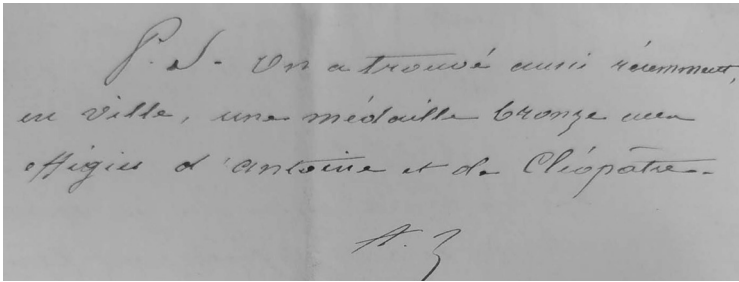 P.S. On a trouvé aussi récemment,
en ville, une médaille bronze aux
effigies d'Antoine et de Cléopâtre.
A. Z